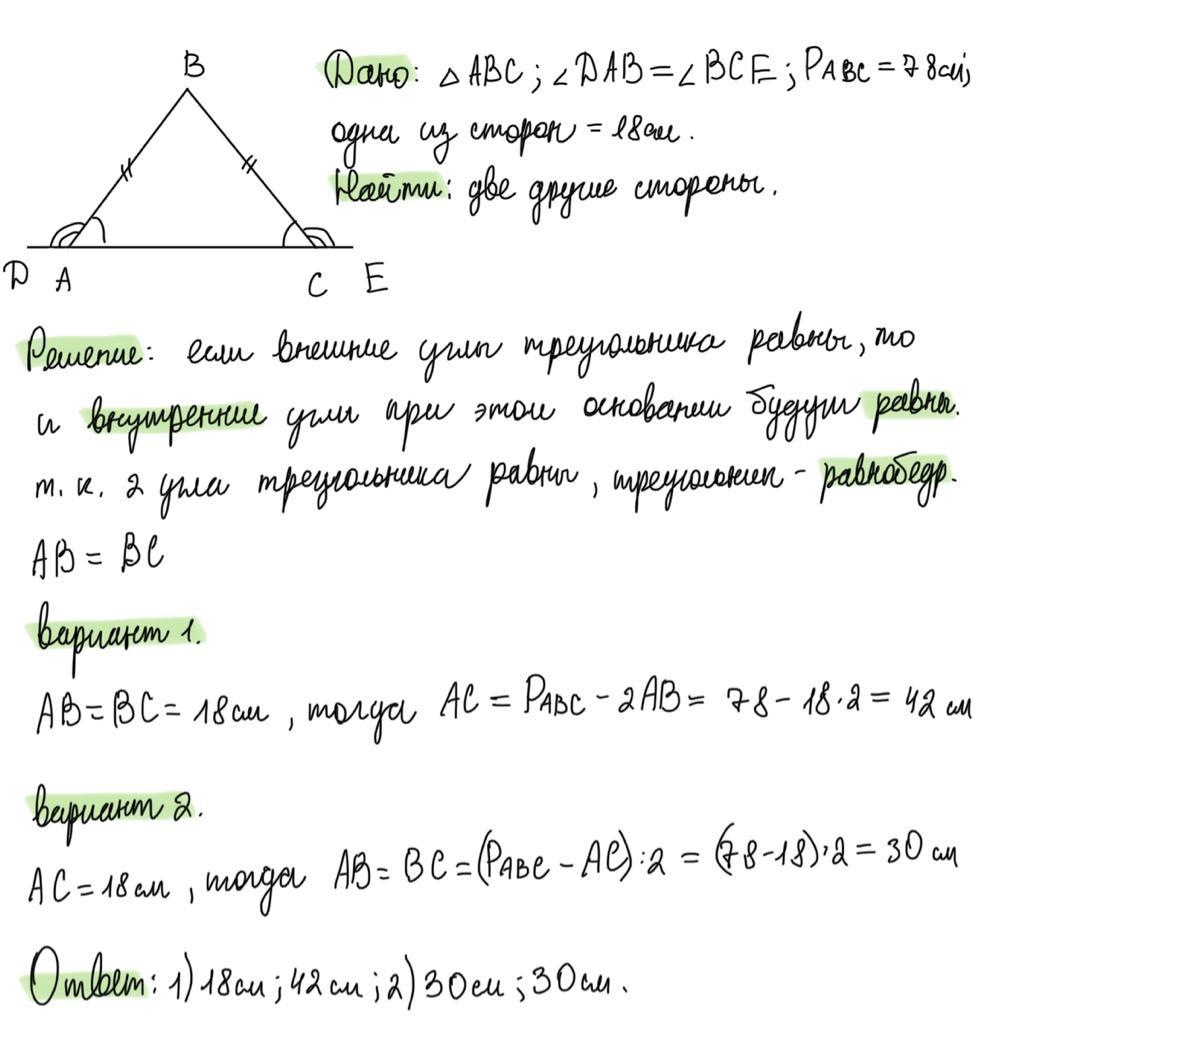 B
Дано: △ ABC ; ∠DAB = ∠BCE ; PABC = 78см;
одна из сторон = 18см.
Найти: две другие стороны.
D A C E
Решение: если внешние углы треугольника равны, то
и внутренние углы при этом основании будут равны.
т. к. 2 угла треугольника равны, треугольник - равнобедр.
AB = BC
вариант 1.
AB = BC = 18см , тогда AC = PABC - 2AB = 78 - 18·2 = 42 см
вариант 2.
AC = 18см , тогда AB = BC = (PABC - AC) : 2 = (78-18):2 = 30 см
Ответ: 1) 18см ; 42см ; 2) 30см ; 30см.